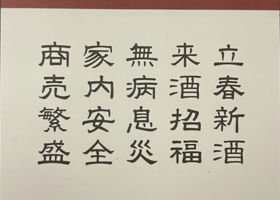 立春新酒
来酒招福
無病息災
家内安全
商売繁盛